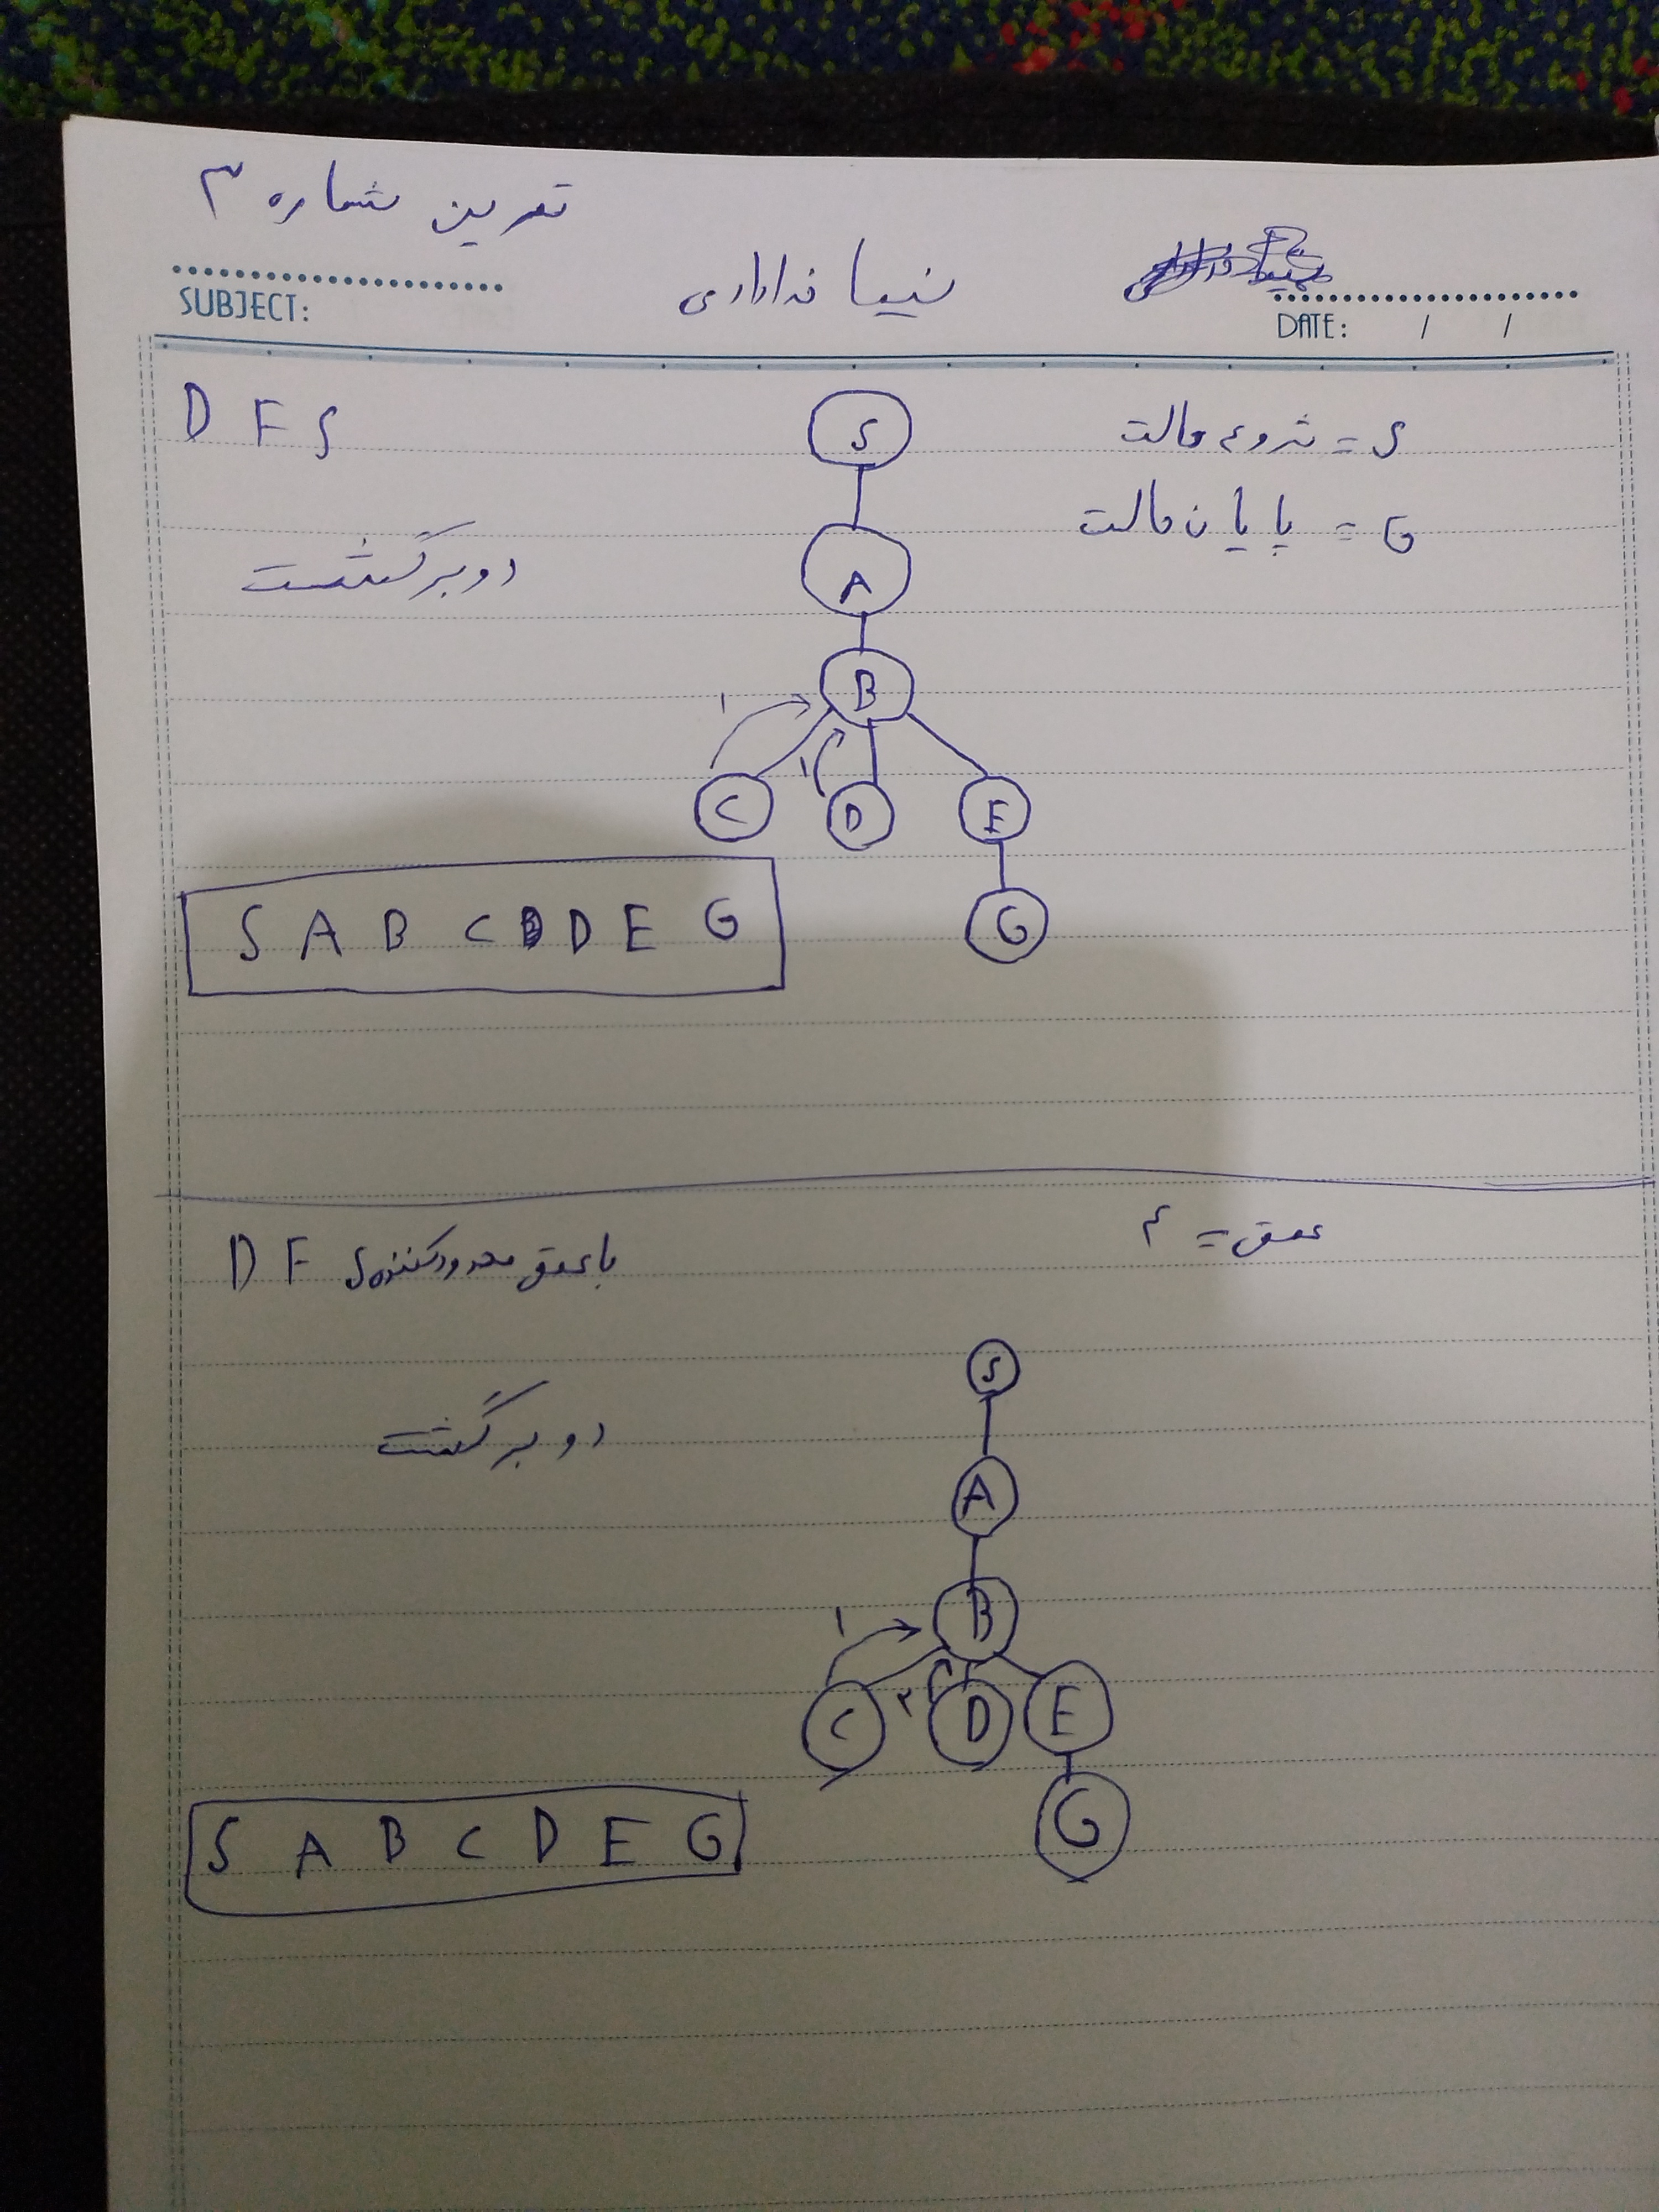 تمرین شماره ۳
SUBJECT:
نیما خدایاری
DATE: / /
D F S
S
S = شروع حالت
G = پایان حالت
A
دو برگشت
B
۱
۱
C D E
S A B C D E G
G
D F S با عمق محدود کننده
عمق = ۴
S
دو برگشت
A
B
۱
۲
C D E
S A B C D E G
G